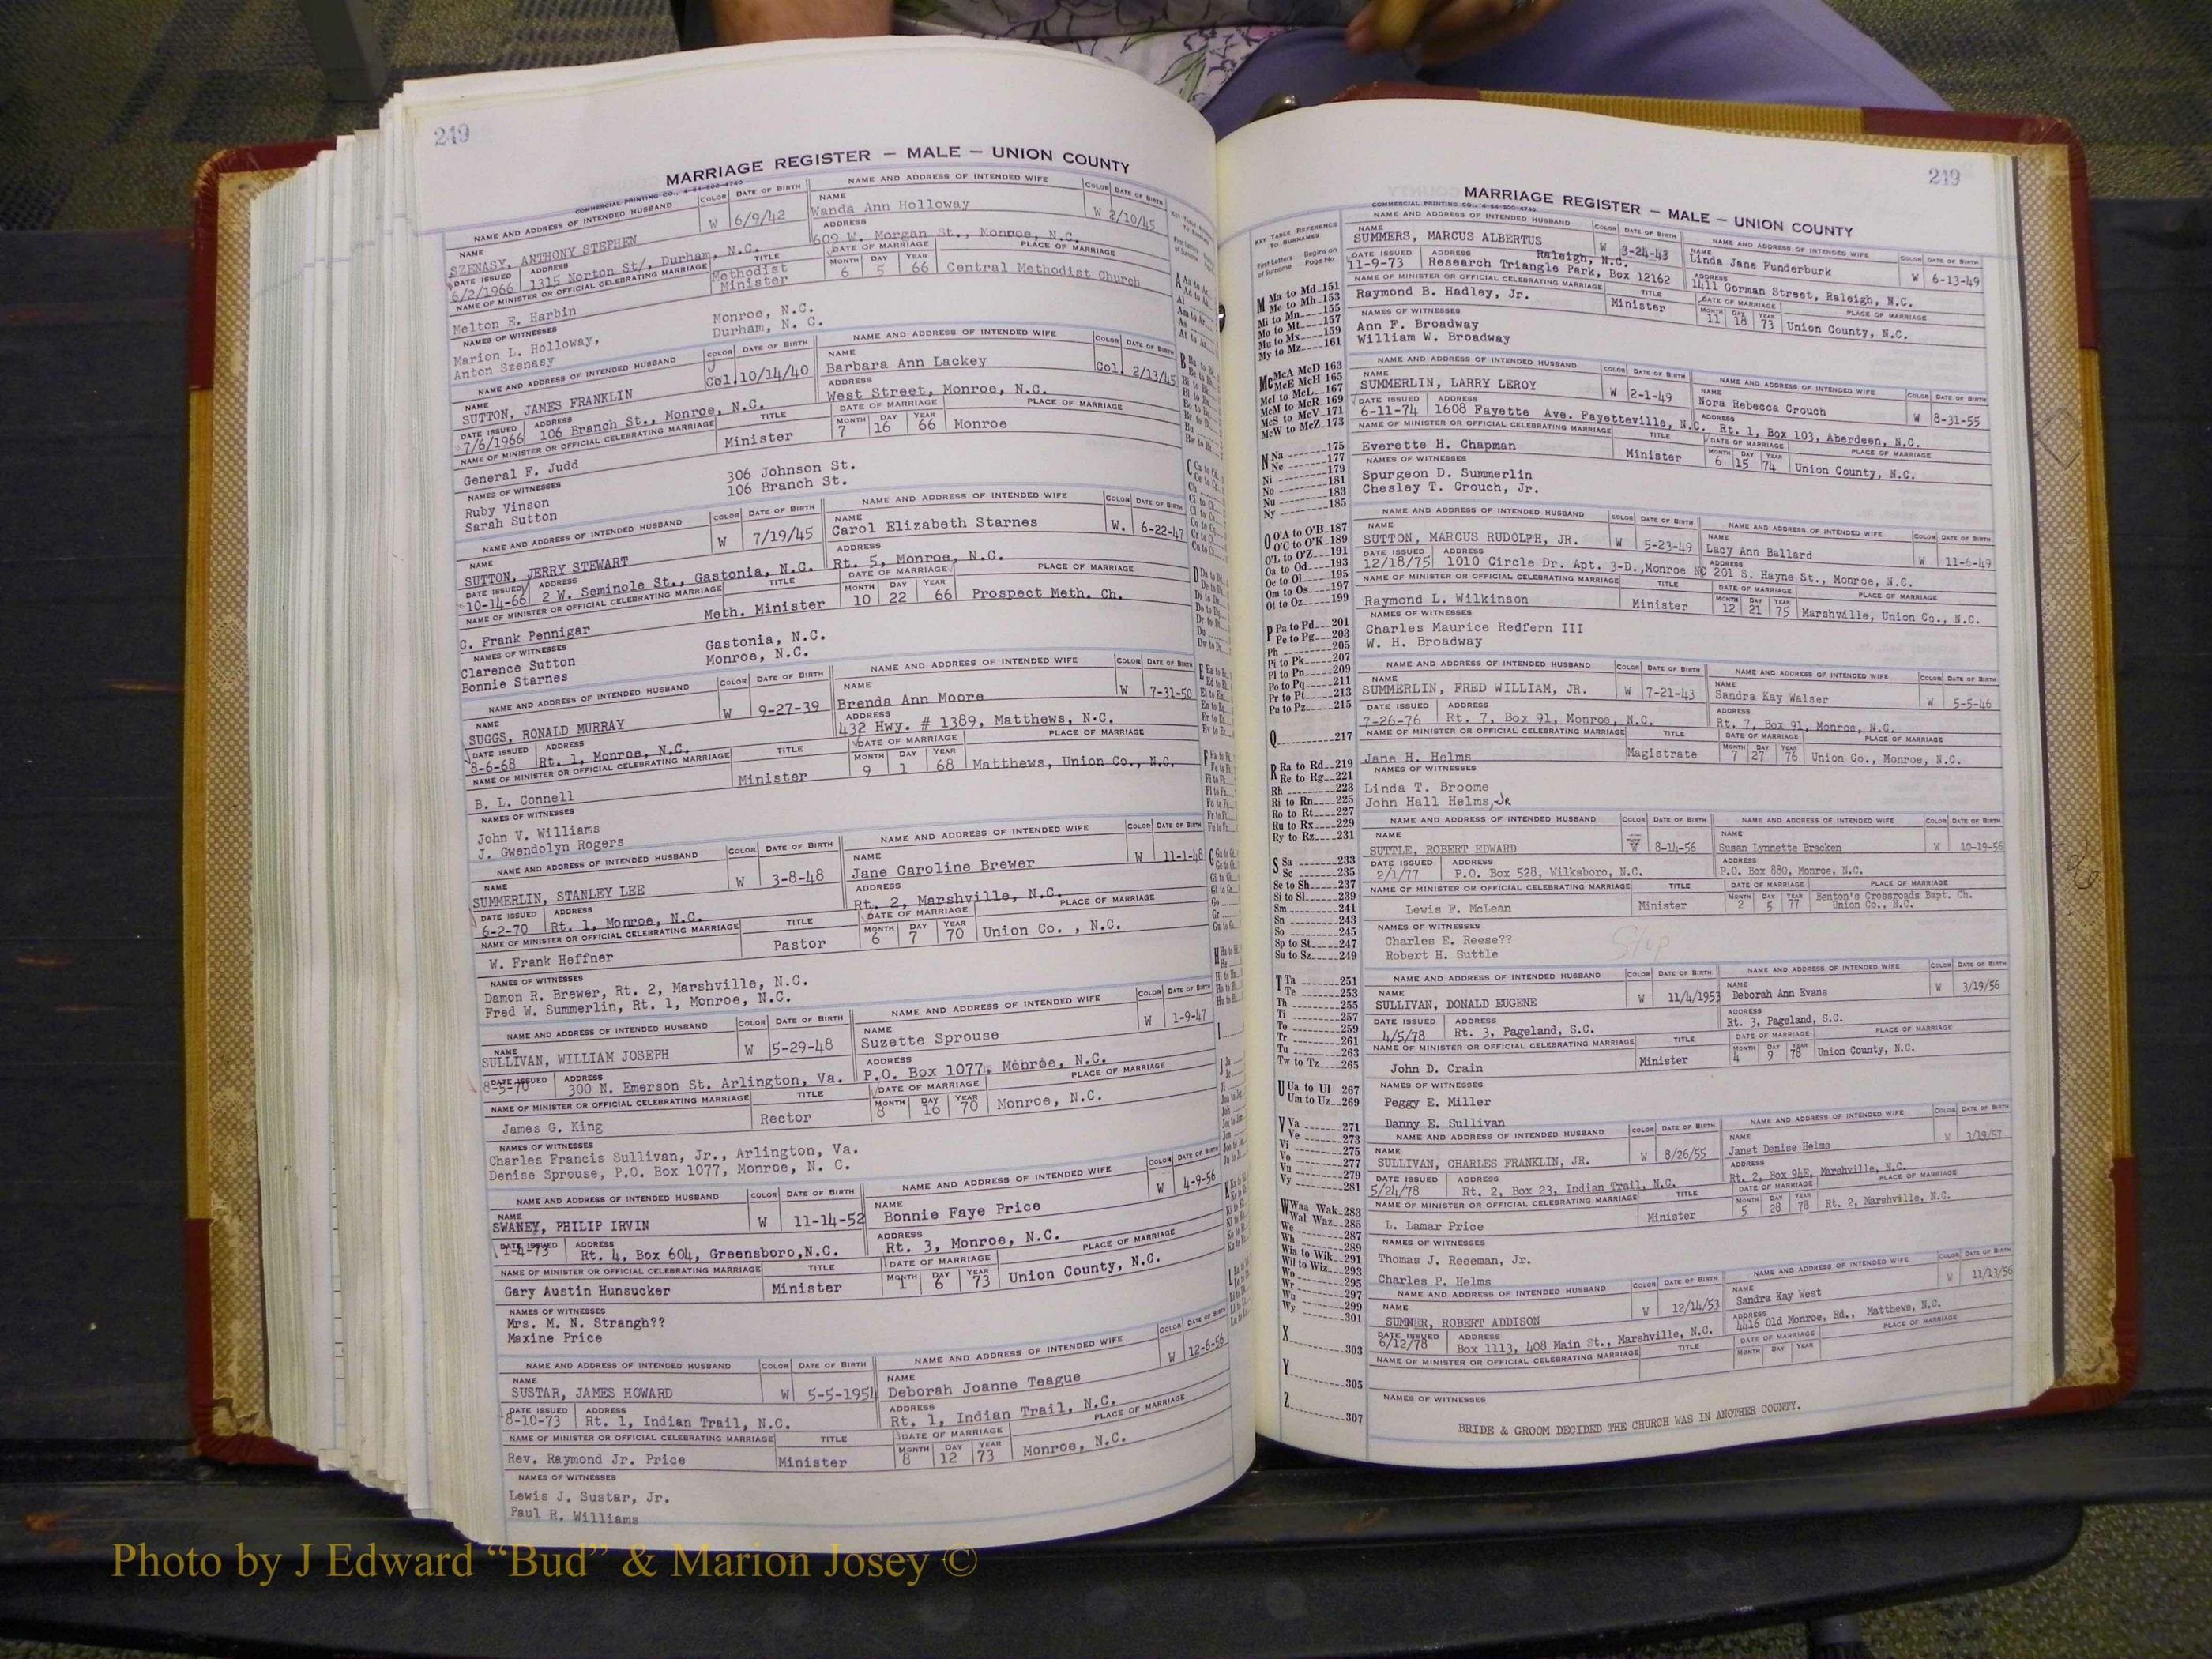 249
MARRIAGE REGISTER — MALE — UNION COUNTY
COMMERCIAL PRINTING CO., 4-64-500-4740
NAME AND ADDRESS OF INTENDED HUSBAND COLOR DATE OF BIRTH NAME AND ADDRESS OF INTENDED WIFE COLOR DATE OF BIRTH
NAME SZENASY, ANTHONY STEPHEN W 6/9/42 NAME Wanda Ann Holloway W 2/10/45
DATE ISSUED 6/2/1966 ADDRESS 1315 Norton St/, Durham, N.C. ADDRESS 609 W. Morgan St., Monroe, N.C.
NAME OF MINISTER OR OFFICIAL CELEBRATING MARRIAGE TITLE DATE OF MARRIAGE PLACE OF MARRIAGE
Melton E. Harbin Methodist Minister MONTH 6 DAY 5 YEAR 66 Central Methodist Church
NAMES OF WITNESSES
Marion L. Holloway, Monroe, N.C.
Anton Szenasy Durham, N. C.
NAME AND ADDRESS OF INTENDED HUSBAND COLOR DATE OF BIRTH NAME AND ADDRESS OF INTENDED WIFE COLOR DATE OF BIRTH
NAME SUTTON, JAMES FRANKLIN Col. 10/14/40 NAME Barbara Ann Lackey Col. 2/13/45
DATE ISSUED 7/6/1966 ADDRESS 106 Branch St., Monroe, N.C. ADDRESS West Street, Monroe, N.C.
NAME OF MINISTER OR OFFICIAL CELEBRATING MARRIAGE TITLE DATE OF MARRIAGE PLACE OF MARRIAGE
General F. Judd Minister MONTH 7 DAY 16 YEAR 66 Monroe
NAMES OF WITNESSES
Ruby Vinson 306 Johnson St.
Sarah Sutton 106 Branch St.
NAME AND ADDRESS OF INTENDED HUSBAND COLOR DATE OF BIRTH NAME AND ADDRESS OF INTENDED WIFE COLOR DATE OF BIRTH
NAME SUTTON, JERRY STEWART W 7/19/45 NAME Carol Elizabeth Starnes W. 6-22-47
DATE ISSUED 10-14-66 ADDRESS 2 W. Seminole St., Gastonia, N.C. ADDRESS Rt. 5, Monroe, N.C.
NAME OF MINISTER OR OFFICIAL CELEBRATING MARRIAGE TITLE DATE OF MARRIAGE PLACE OF MARRIAGE
C. Frank Pennigar Meth. Minister MONTH 10 DAY 22 YEAR 66 Prospect Meth. Ch.
NAMES OF WITNESSES
Clarence Sutton Gastonia, N.C.
Bonnie Starnes Monroe, N.C.
NAME AND ADDRESS OF INTENDED HUSBAND COLOR DATE OF BIRTH NAME AND ADDRESS OF INTENDED WIFE COLOR DATE OF BIRTH
NAME SUGGS, RONALD MURRAY W 9-27-39 NAME Brenda Ann Moore W 7-31-50
DATE ISSUED 8-6-68 ADDRESS Rt. 1, Monroe, N.C. ADDRESS 432 Hwy. # 1389, Matthews, N.C.
NAME OF MINISTER OR OFFICIAL CELEBRATING MARRIAGE TITLE DATE OF MARRIAGE PLACE OF MARRIAGE
B. L. Connell Minister MONTH 9 DAY 1 YEAR 68 Matthews, Union Co., N.C.
NAMES OF WITNESSES
John V. Williams
J. Gwendolyn Rogers
NAME AND ADDRESS OF INTENDED HUSBAND COLOR DATE OF BIRTH NAME AND ADDRESS OF INTENDED WIFE COLOR DATE OF BIRTH
NAME SUMMERLIN, STANLEY LEE W 3-8-48 NAME Jane Caroline Brewer W 11-1-48
DATE ISSUED 6-2-70 ADDRESS Rt. 1, Monroe, N.C. ADDRESS Rt. 2, Marshville, N.C.
NAME OF MINISTER OR OFFICIAL CELEBRATING MARRIAGE TITLE DATE OF MARRIAGE PLACE OF MARRIAGE
W. Frank Heffner Pastor MONTH 6 DAY 7 YEAR 70 Union Co. , N.C.
NAMES OF WITNESSES
Damon R. Brewer, Rt. 2, Marshville, N.C.
Fred W. Summerlin, Rt. 1, Monroe, N.C.
NAME AND ADDRESS OF INTENDED HUSBAND COLOR DATE OF BIRTH NAME AND ADDRESS OF INTENDED WIFE COLOR DATE OF BIRTH
NAME SULLIVAN, WILLIAM JOSEPH W 5-29-48 NAME Suzette Sprouse W 1-9-47
DATE ISSUED 8-5-70 ADDRESS 300 N. Emerson St. Arlington, Va. ADDRESS P.O. Box 1077, Monroe, N.C.
NAME OF MINISTER OR OFFICIAL CELEBRATING MARRIAGE TITLE DATE OF MARRIAGE PLACE OF MARRIAGE
James G. King Rector MONTH 8 DAY 16 YEAR 70 Monroe, N.C.
NAMES OF WITNESSES
Charles Francis Sullivan, Jr., Arlington, Va.
Denise Sprouse, P.O. Box 1077, Monroe, N. C.
NAME AND ADDRESS OF INTENDED HUSBAND COLOR DATE OF BIRTH NAME AND ADDRESS OF INTENDED WIFE COLOR DATE OF BIRTH
NAME SWANEY, PHILIP IRVIN W 11-14-52 NAME Bonnie Faye Price W 4-9-56
DATE ISSUED 1-4-73 ADDRESS Rt. 4, Box 604, Greensboro,N.C. ADDRESS Rt. 3, Monroe, N.C.
NAME OF MINISTER OR OFFICIAL CELEBRATING MARRIAGE TITLE DATE OF MARRIAGE PLACE OF MARRIAGE
Gary Austin Hunsucker Minister MONTH 1 DAY 6 YEAR 73 Union County, N.C.
NAMES OF WITNESSES
Mrs. M. N. Strangh??
Maxine Price
NAME AND ADDRESS OF INTENDED HUSBAND COLOR DATE OF BIRTH NAME AND ADDRESS OF INTENDED WIFE COLOR DATE OF BIRTH
NAME SUSTAR, JAMES HOWARD W 5-5-1954 NAME Deborah Joanne Teague W 12-6-56
DATE ISSUED 8-10-73 ADDRESS Rt. 1, Indian Trail, N.C. ADDRESS Rt. 1, Indian Trail, N.C.
NAME OF MINISTER OR OFFICIAL CELEBRATING MARRIAGE TITLE DATE OF MARRIAGE PLACE OF MARRIAGE
Rev. Raymond Jr. Price Minister MONTH 8 DAY 12 YEAR 73 Monroe, N.C.
NAMES OF WITNESSES
Lewis J. Sustar, Jr.
Paul R. Williams
249
MARRIAGE REGISTER — MALE — UNION COUNTY
COMMERCIAL PRINTING CO., 4-64-500-4740
KEY TABLE REFERENCE TO SURNAMES
First Letters of Surname Begins on Page No
M Ma to Md 151
Me to Mh 153
Mi to Mn 155
Mo to Mt 157
Mu to Mx 159
My to Mz 161
Mc McA McD 163
McE McH 165
McI to McL 167
McM to McR 169
McS to McV 171
McW to McZ 173
N Na 175
Ne 177
Ni 179
No 181
Nu 183
Ny 185
O O'A to O'B 187
O'C to O'K 189
O'L to O'Z 191
Oa to Od 193
Oe to Ol 195
Om to Os 197
Ot to Oz 199
P Pa to Pd 201
Pe to Pg 203
Ph 205
Pi to Pk 207
Pl to Pn 209
Po to Pq 211
Pr to Pt 213
Pu to Pz 215
Q 217
R Ra to Rd 219
Re to Rg 221
Rh 223
Ri to Rn 225
Ro to Rt 227
Ru to Rx 229
Ry to Rz 231
S Sa 233
Sc 235
Se to Sh 237
Si to Sl 239
Sm 241
Sn 243
So 245
Sp to St 247
Su to Sz 249
T Ta 251
Te 253
Th 255
Ti 257
To 259
Tr 261
Tu 263
Tw to Tz 265
U Ua to Ul 267
Um to Uz 269
V Va 271
Ve 273
Vi 275
Vo 277
Vu 279
Vy 281
W Waa Wak 283
Wal Waz 285
We 287
Wh 289
Wia to Wik 291
Wil to Wiz 293
Wo 295
Wr 297
Wu 299
Wy 301
X 303
Y 305
Z 307
NAME AND ADDRESS OF INTENDED HUSBAND COLOR DATE OF BIRTH NAME AND ADDRESS OF INTENDED WIFE COLOR DATE OF BIRTH
NAME SUMMERS, MARCUS ALBERTUS W 3-24-43 NAME Linda Jane Funderburk W 6-13-49
DATE ISSUED 11-9-73 ADDRESS Raleigh, N.C. Research Triangle Park, Box 12162 ADDRESS 1411 Gorman Street, Raleigh, N.C.
NAME OF MINISTER OR OFFICIAL CELEBRATING MARRIAGE TITLE DATE OF MARRIAGE PLACE OF MARRIAGE
Raymond B. Hadley, Jr. Minister MONTH 11 DAY 18 YEAR 73 Union County, N.C.
NAMES OF WITNESSES
Ann F. Broadway
William W. Broadway
NAME AND ADDRESS OF INTENDED HUSBAND COLOR DATE OF BIRTH NAME AND ADDRESS OF INTENDED WIFE COLOR DATE OF BIRTH
NAME SUMMERLIN, LARRY LEROY W 2-1-49 NAME Nora Rebecca Crouch W 8-31-55
DATE ISSUED 6-11-74 ADDRESS 1608 Fayette Ave. Fayetteville, N.C. ADDRESS Rt. 1, Box 103, Aberdeen, N.C.
NAME OF MINISTER OR OFFICIAL CELEBRATING MARRIAGE TITLE DATE OF MARRIAGE PLACE OF MARRIAGE
Everette H. Chapman Minister MONTH 6 DAY 15 YEAR 74 Union County, N.C.
NAMES OF WITNESSES
Spurgeon D. Summerlin
Chesley T. Crouch, Jr.
NAME AND ADDRESS OF INTENDED HUSBAND COLOR DATE OF BIRTH NAME AND ADDRESS OF INTENDED WIFE COLOR DATE OF BIRTH
NAME SUTTON, MARCUS RUDOLPH, JR. W 5-23-49 NAME Lacy Ann Ballard W 11-6-49
DATE ISSUED 12/18/75 ADDRESS 1010 Circle Dr. Apt. 3-D.,Monroe NC ADDRESS 201 S. Hayne St., Monroe, N.C.
NAME OF MINISTER OR OFFICIAL CELEBRATING MARRIAGE TITLE DATE OF MARRIAGE PLACE OF MARRIAGE
Raymond L. Wilkinson Minister MONTH 12 DAY 21 YEAR 75 Marshville, Union Co., N.C.
NAMES OF WITNESSES
Charles Maurice Redfern III
W. H. Broadway
NAME AND ADDRESS OF INTENDED HUSBAND COLOR DATE OF BIRTH NAME AND ADDRESS OF INTENDED WIFE COLOR DATE OF BIRTH
NAME SUMMERLIN, FRED WILLIAM, JR. W 7-21-43 NAME Sandra Kay Walser W 5-5-46
DATE ISSUED 7-26-76 ADDRESS Rt. 7, Box 91, Monroe, N.C. ADDRESS Rt. 7, Box 91, Monroe, N.C.
NAME OF MINISTER OR OFFICIAL CELEBRATING MARRIAGE TITLE DATE OF MARRIAGE PLACE OF MARRIAGE
Jane H. Helms Magistrate MONTH 7 DAY 27 YEAR 76 Union Co., Monroe, N.C.
NAMES OF WITNESSES
Linda T. Broome
John Hall Helms, JR
NAME AND ADDRESS OF INTENDED HUSBAND COLOR DATE OF BIRTH NAME AND ADDRESS OF INTENDED WIFE COLOR DATE OF BIRTH
NAME SUTTLE, ROBERT EDWARD W 8-14-56 NAME Susan Lynnette Bracken W 10-19-56
DATE ISSUED 2/1/77 ADDRESS P.O. Box 528, Wilksboro, N.C. ADDRESS P.O. Box 880, Monroe, N.C.
NAME OF MINISTER OR OFFICIAL CELEBRATING MARRIAGE TITLE DATE OF MARRIAGE PLACE OF MARRIAGE
Lewis F. McLean Minister MONTH 2 DAY 5 YEAR 77 Benton's Crossroads Bapt. Ch. Union Co., N.C.
NAMES OF WITNESSES
Charles E. Reese??
Robert H. Suttle
NAME AND ADDRESS OF INTENDED HUSBAND COLOR DATE OF BIRTH NAME AND ADDRESS OF INTENDED WIFE COLOR DATE OF BIRTH
NAME SULLIVAN, DONALD EUGENE W 11/4/1953 NAME Deborah Ann Evans W 3/19/56
DATE ISSUED 4/5/78 ADDRESS Rt. 3, Pageland, S.C. ADDRESS Rt. 3, Pageland, S.C.
NAME OF MINISTER OR OFFICIAL CELEBRATING MARRIAGE TITLE DATE OF MARRIAGE PLACE OF MARRIAGE
John D. Crain Minister MONTH 4 DAY 9 YEAR 78 Union County, N.C.
NAMES OF WITNESSES
Peggy E. Miller
Danny E. Sullivan
NAME AND ADDRESS OF INTENDED HUSBAND COLOR DATE OF BIRTH NAME AND ADDRESS OF INTENDED WIFE COLOR DATE OF BIRTH
NAME SULLIVAN, CHARLES FRANKLIN, JR. W 8/26/55 NAME Janet Denise Helms W
DATE ISSUED 5/24/78 ADDRESS Rt. 2, Box 23, Indian Trail, N.C. ADDRESS Rt. 2, Box 94E, Marshville, N.C.
NAME OF MINISTER OR OFFICIAL CELEBRATING MARRIAGE TITLE DATE OF MARRIAGE PLACE OF MARRIAGE
L. Lamar Price Minister MONTH 5 DAY 28 YEAR 78 Rt. 2, Marshville, N.C.
NAMES OF WITNESSES
Thomas J. Reeeman, Jr.
Charles P. Helms
NAME AND ADDRESS OF INTENDED HUSBAND COLOR DATE OF BIRTH NAME AND ADDRESS OF INTENDED WIFE COLOR DATE OF BIRTH
NAME SUMNER, ROBERT ADDISON W 12/14/53 NAME Sandra Kay West W 11/13/56
DATE ISSUED 6/12/78 ADDRESS Box 1113, 408 Main St., Marshville, N.C. ADDRESS 4416 Old Monroe, Rd., Matthews, N.C.
NAME OF MINISTER OR OFFICIAL CELEBRATING MARRIAGE TITLE DATE OF MARRIAGE PLACE OF MARRIAGE
MONTH DAY YEAR
NAMES OF WITNESSES
BRIDE & GROOM DECIDED THE CHURCH WAS IN ANOTHER COUNTY.
Photo by J Edward “Bud” & Marion Josey ©